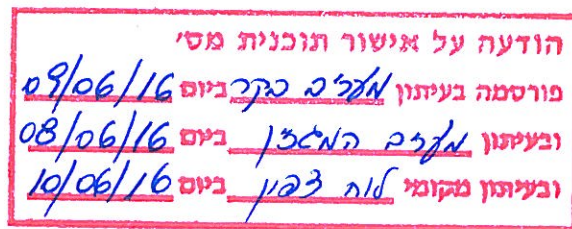 הודעה על אישור תוכנית מס׳
פורסמה בעיתון מעריב בקר ביום 09/06/16
ובעיתון מעריב המגזין ביום 08/06/16
ובעיתון מקומי לוח צפון ביום 10/06/16